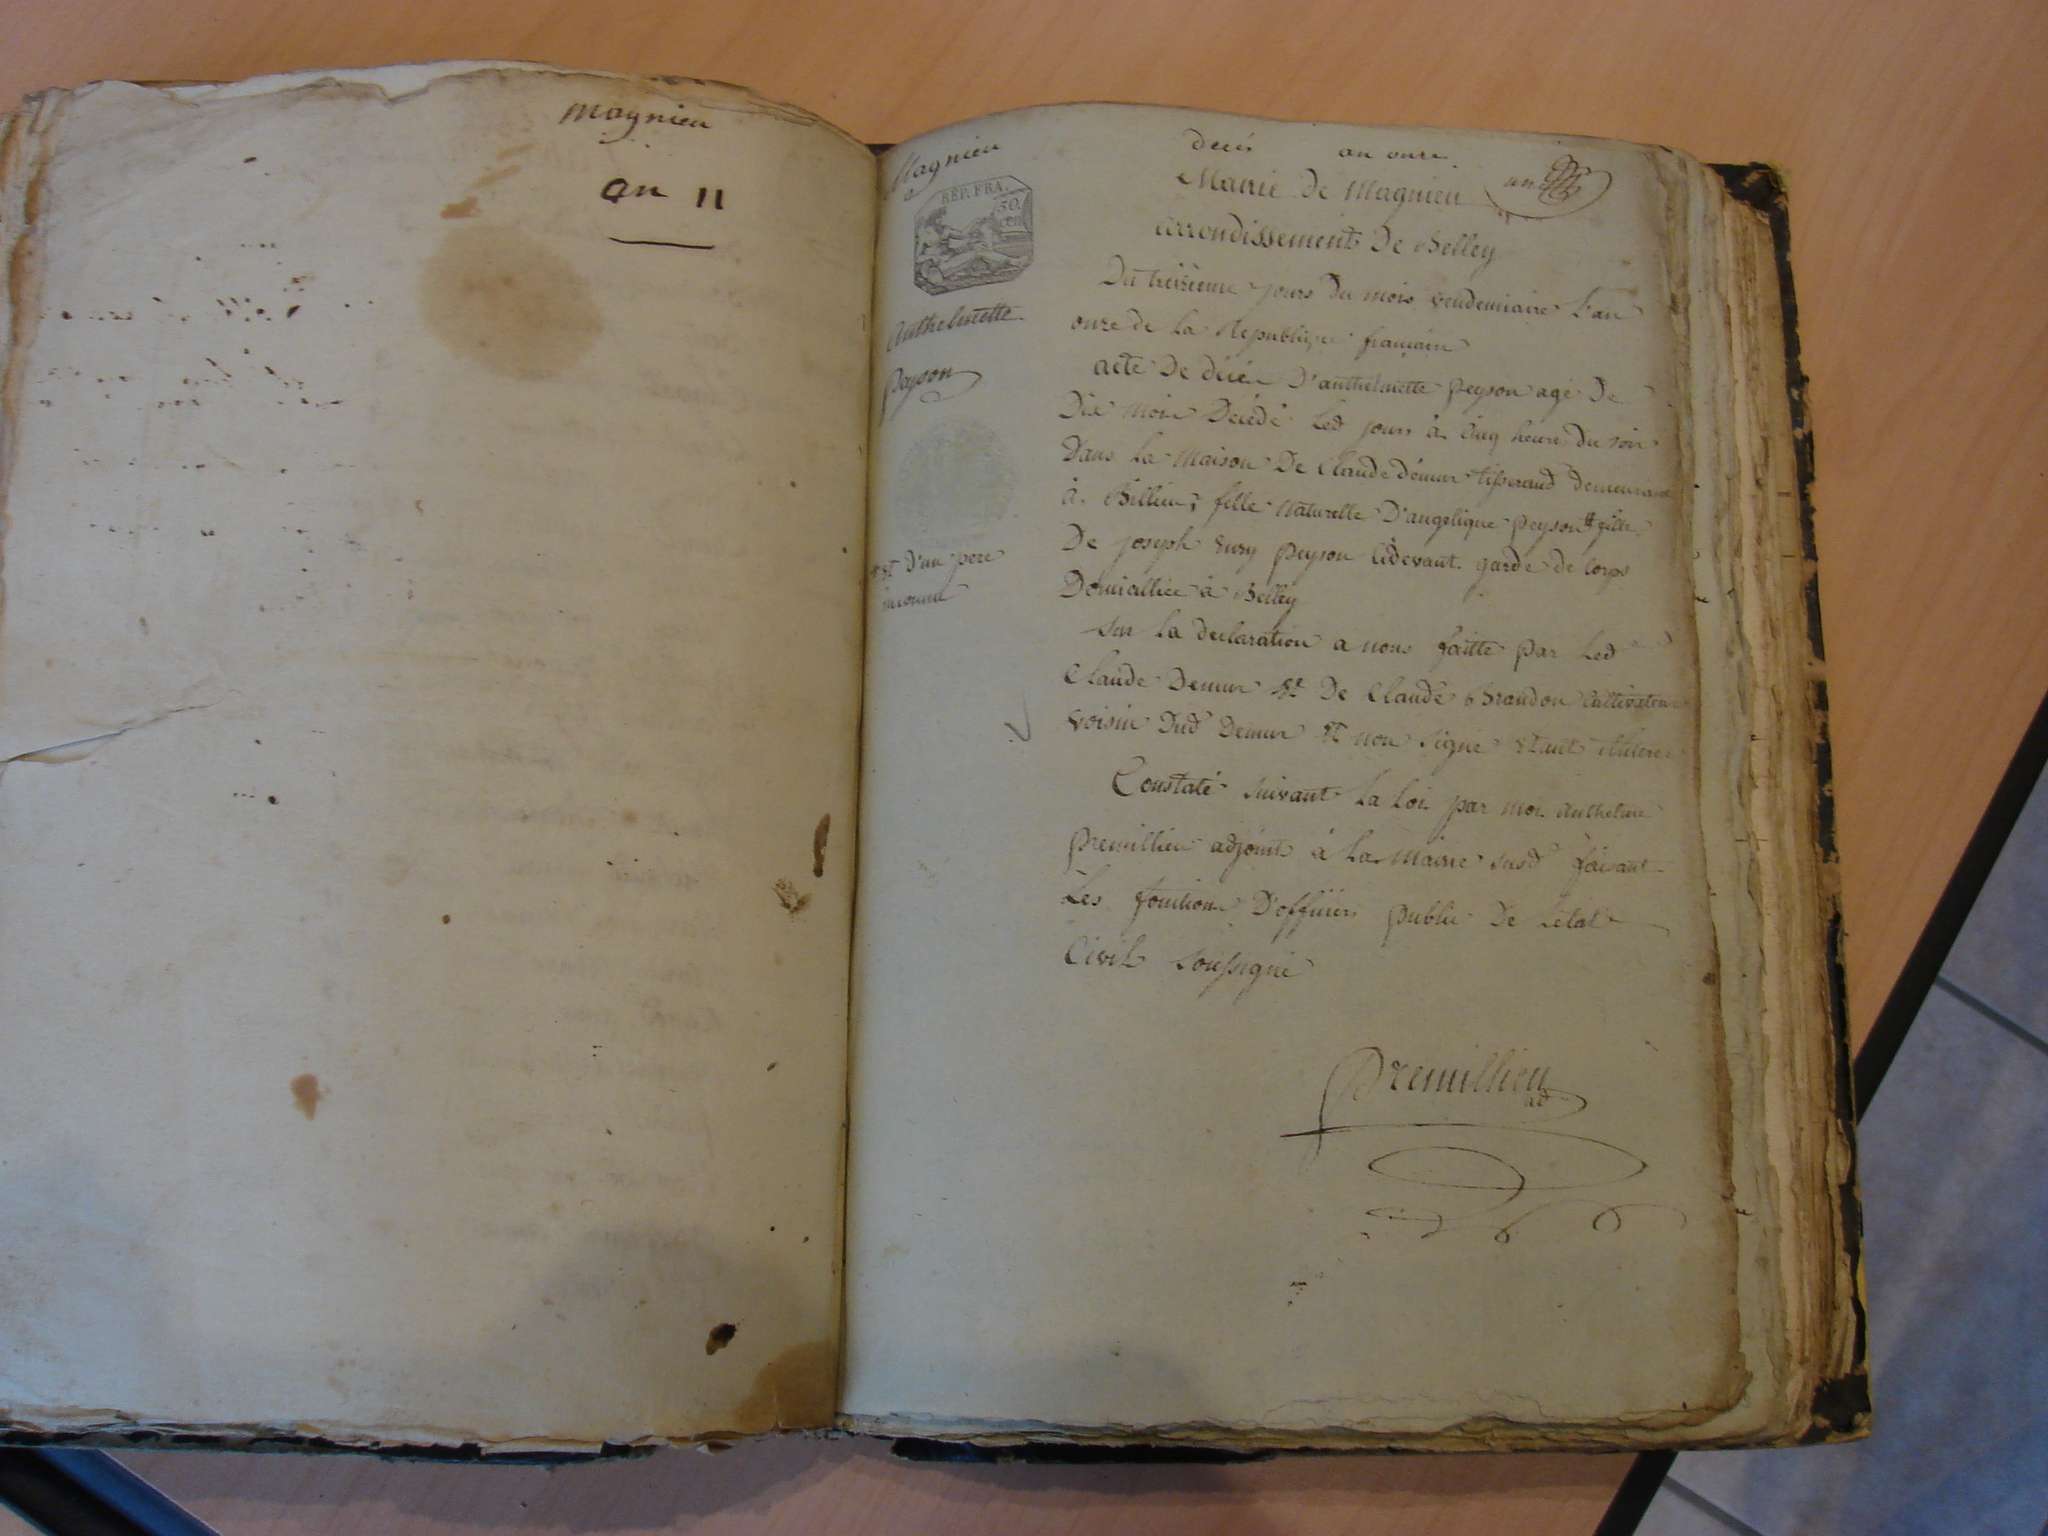 Magnieu
an 11
Magnieu
REP. FRA.
50.
cn
Anthelmette
peyson
et d'un pere
inconnu
deces an onze
un
Mairie De Magnieu
arrondissement De Belley
Du treizieme jours Du mois vendemiaire L'an
onze de La Republique francaise
acte De décés D'anthelmette peyson agé De
Dix mois Décédé Led jours à cinq heures Du soir
Dans La Maison De Claude Démur tisserand Demeurant
à Billieu, fille Naturelle D'angelique peyson # fille
De joseph peyson cidevant garde de corps
Domicilliée à Belley
sur La declaration a nous faitte par Led
Claude Demur et De Claude Brandon Cultivateur
voisin Dud Demur et non signe etant illiteré
Constaté suivant La Loi par moi anthelme
premillieu adjoint à La Mairie susd faisant
Les fonctions D'officier public De Letat
Civil soussigné
Premillieu
ad